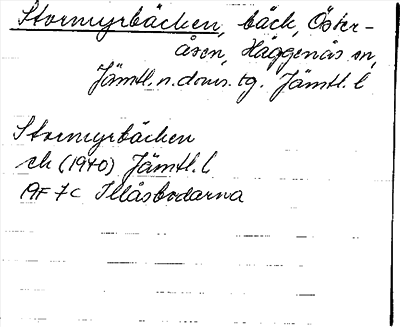 Stormyrbäcken, bäck, Öster-
åsen, Häggenås sn,
Jämtl. n. doms. tg. Jämtl. l
Stormyrbäcken
ek (1940) Jämtl. l
19F 7c Illåsbodarna